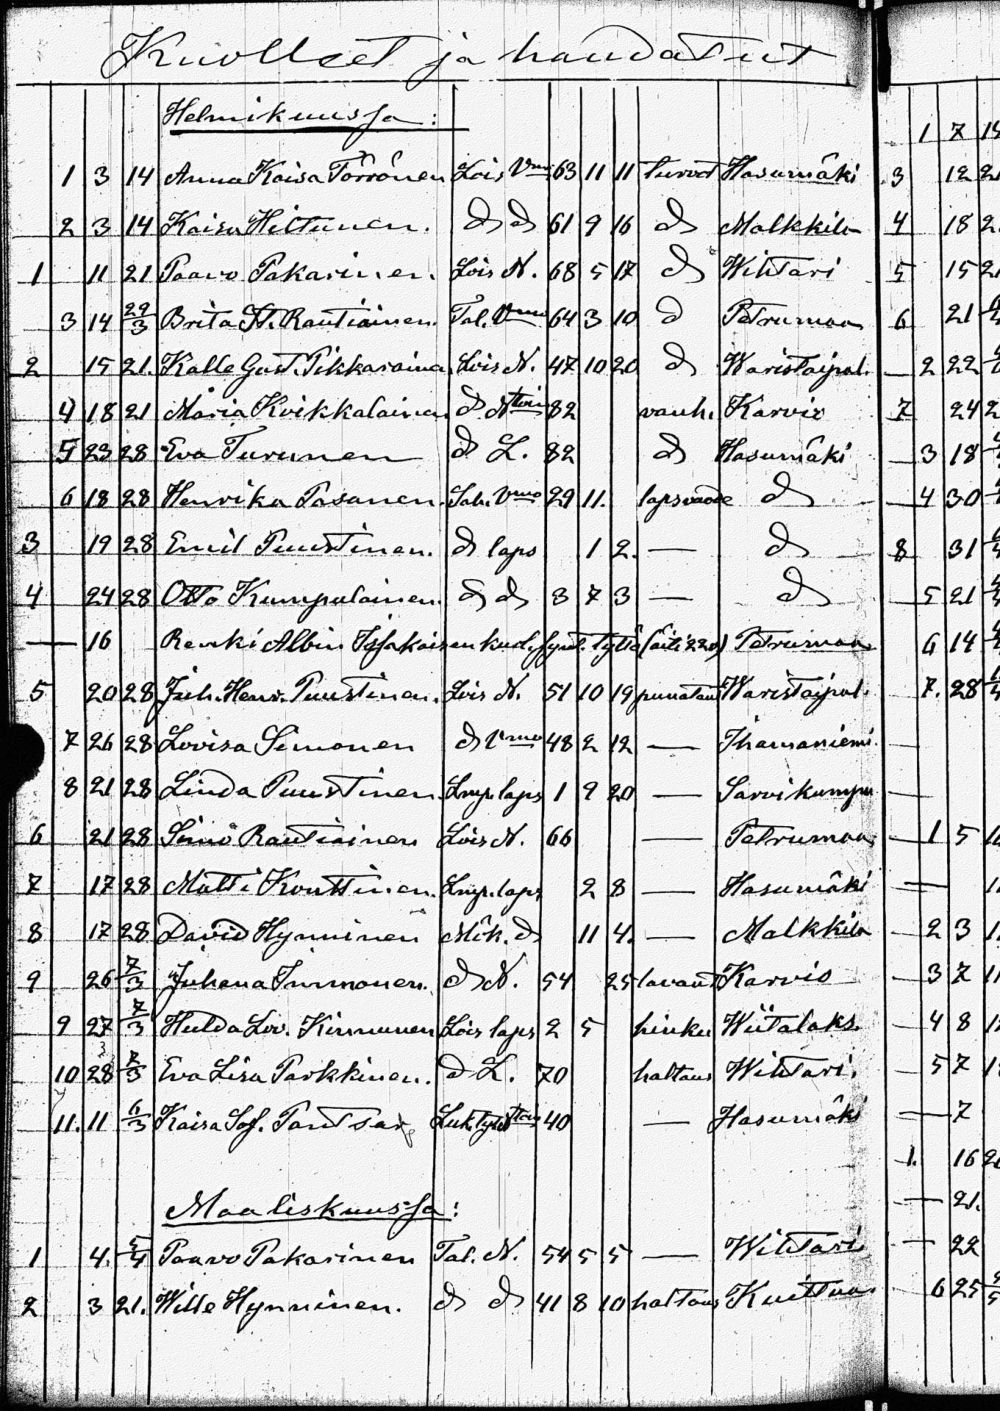 Kuolleet ja haudatut
Helmikuussa:
1 3 14 Anna Kaisa Törrönen Lois Vmo 63 11 11 turvot Hasumäki
2 3 14 Kaisa Hiltunen. d d 61 9 16 d Malkkila
1 11 21 Paavo Pakarinen. Lois N. 68 5 17 d Wihtari
3 14 29/3 Brita St. Rautiainen. Tal. Vmo 64 3 10 d Petrumaa
2 15 21. Kalle Gust. Pikkarainen Lois N. 47 10 20 d Waristaipal.
4 18 21 Maria Kvikkalainen d 82 vanh. Karvio
5 23 28 Eva Turunen d L. 82 d Hasumäki
6 18 28 Henrika Pasanen. Vmo 29 11. lapsvuode d
3 19 28 Emil Puustinen. d laps 1 2. — d
4 24 28 Otto Kumpulainen. d d 3 7 3 — d
— 16 Renki Albin kuol. synt. tyttö (äiti 220) Petrumaa
5 20 28 Juh. Henr. Puustinen. Lois N. 51 10 19 punataut Waristaipal.
7 26 28 Lovisa Simonen d Vmo 48 2 12 — Ihamaniemi.
8 21 28 Linda Puustinen. Lmp. laps 1 9 20 — Sarvikumpu
6 21 28 Simo Rautiainen Lois N. 66 — Petrumaa
7 17 28 Matti Konttinen. Lmp. laps 2 8 — Hasumäki
8 17 28 David Hynninen Mök. d 11 4. — Malkkila
9 26 7/3 Juhana Immonen. d N. 54 25 lavant Karvio
9 27 7/3 Hulda Lov. Kinnunen Lois laps 2 5 hinku Wiitalaks.
10 28 7/3 Eva Lisa Parkkinen. d L. 70 haltaus Wihtari.
11. 11 6/3 Kaisa Sof. 40 — Hasumäki
Maaliskuussa:
1 4. 5/4 Paavo Pakarinen Tal. N. 54 5 5 — Wihtari
2 3 21. Wille Hynninen. d d 41 8 10 haltaus Kuittua
1 7
3 12
4 18
5 15
6 21
2 22
7 24
3 18
4 30
8 31
5 21
6 14
7. 28
—
—
1 5
—
2 3
3 7
4 8
5 7
— 7
1. 16
— 21.
— 22
6 25